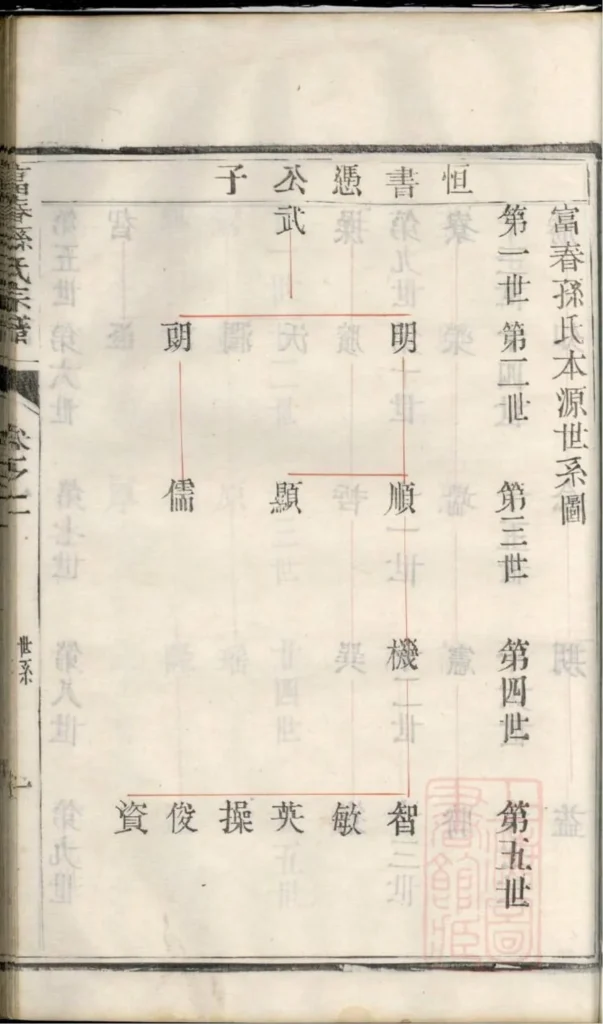 富春孫氏本源世系圖
恒書憑公子
第一世
武
第二世
明
朗
第三世
順
顯
儒
第四世
機
第五世
智
敏
英
操
俊
資
富春孫氏宗譜
卷之一
世系
一